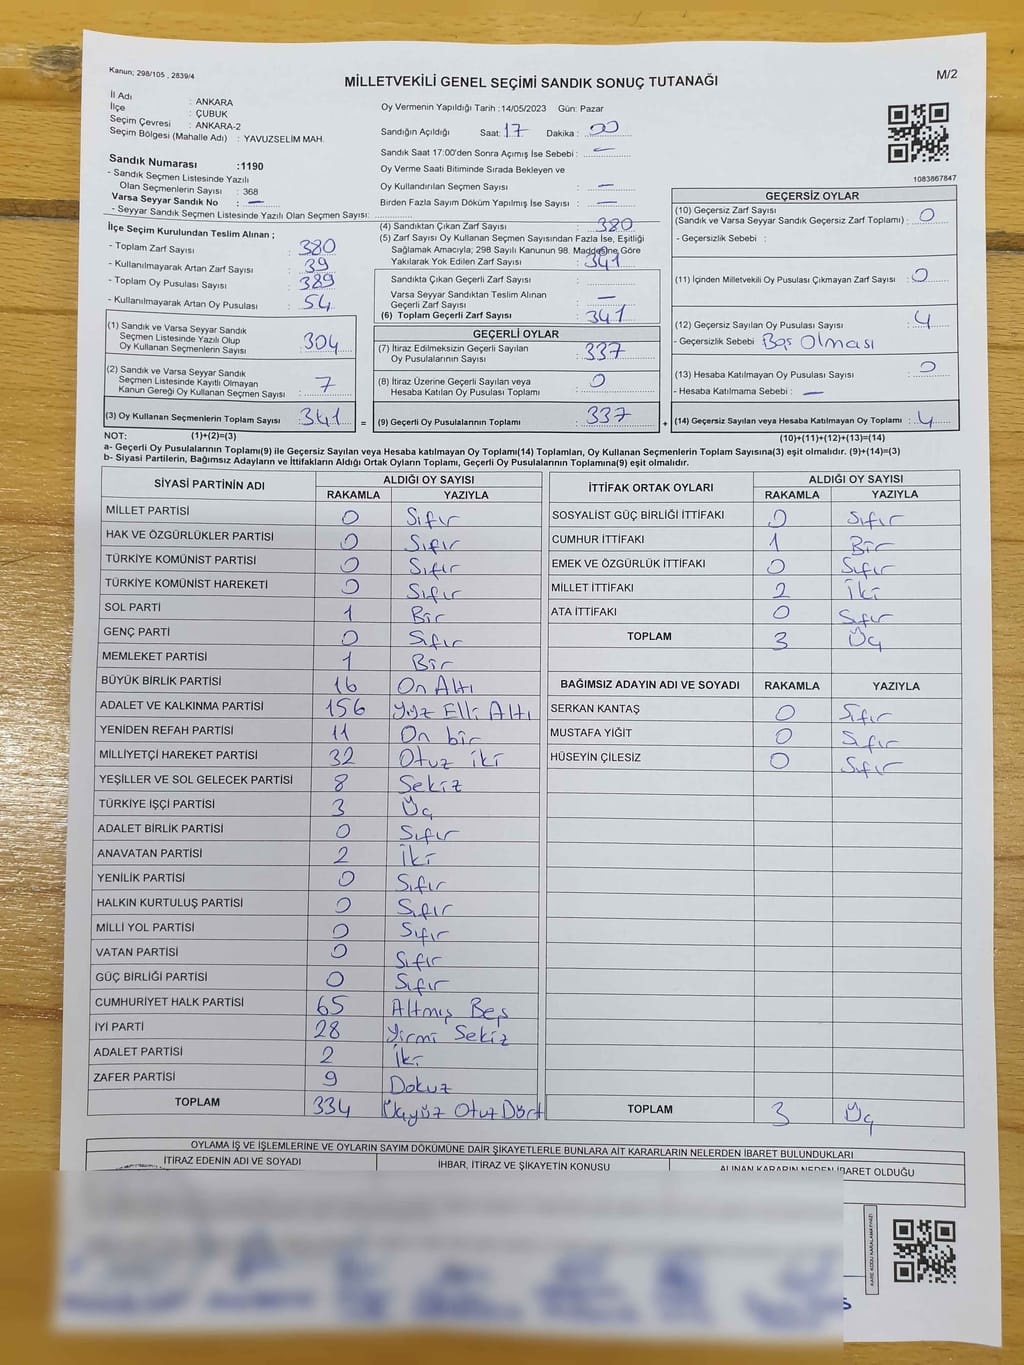 Kanun; 298/105 , 2839/4
MİLLETVEKİLİ GENEL SEÇİMİ SANDIK SONUÇ TUTANAĞI
M/2
İl Adı : ANKARA
İlçe : ÇUBUK
Seçim Çevresi : ANKARA-2
Seçim Bölgesi (Mahalle Adı) : YAVUZSELİM MAH.
Oy Vermenin Yapıldığı Tarih :14/05/2023 Gün: Pazar
Sandığın Açıldığı Saat: 17 Dakika : 00
Sandık Saat 17:00'den Sonra Açımış İse Sebebi : —
Oy Verme Saati Bitiminde Sırada Bekleyen ve
Oy Kullandırılan Seçmen Sayısı : —
Birden Fazla Sayım Döküm Yapılmış İse Sayısı : —
1083867847
Sandık Numarası :1190
- Sandık Seçmen Listesinde Yazılı
Olan Seçmenlerin Sayısı : 368
Varsa Seyyar Sandık No : —
- Seyyar Sandık Seçmen Listesinde Yazılı Olan Seçmen Sayısı:
İlçe Seçim Kurulundan Teslim Alınan ;
- Toplam Zarf Sayısı : 380
- Kullanılmayarak Artan Zarf Sayısı : 39
- Toplam Oy Pusulası Sayısı : 389
- Kullanılmayarak Artan Oy Pusulası : 54
(1) Sandık ve Varsa Seyyar Sandık
Seçmen Listesinde Yazılı Olup
Oy Kullanan Seçmenlerin Sayısı : 304
(2) Sandık ve Varsa Seyyar Sandık
Seçmen Listesinde Kayıtlı Olmayan
Kanun Gereği Oy Kullanan Seçmen Sayısı : 7
(3) Oy Kullanan Seçmenlerin Toplam Sayısı : 341 =
(4) Sandıktan Çıkan Zarf Sayısı : 380
(5) Zarf Sayısı Oy Kullanan Seçmen Sayısından Fazla İse, Eşitliği
Sağlamak Amacıyla; 298 Sayılı Kanunun 98. Maddesine Göre
Yakılarak Yok Edilen Zarf Sayısı : 341
Sandıkta Çıkan Geçerli Zarf Sayısı :
Varsa Seyyar Sandıktan Teslim Alınan
Geçerli Zarf Sayısı : —
(6) Toplam Geçerli Zarf Sayısı : 341
GEÇERLİ OYLAR
(7) İtiraz Edilmeksizin Geçerli Sayılan
Oy Pusulalarının Sayısı : 337
(8) İtiraz Üzerine Geçerli Sayılan veya
Hesaba Katılan Oy Pusulası Toplamı : 0
(9) Geçerli Oy Pusulalarının Toplamı : 337 +
GEÇERSİZ OYLAR
(10) Geçersiz Zarf Sayısı
(Sandık ve Varsa Seyyar Sandık Geçersiz Zarf Toplamı) : 0
- Geçersizlik Sebebi :
(11) İçinden Milletvekili Oy Pusulası Çıkmayan Zarf Sayısı : 0
(12) Geçersiz Sayılan Oy Pusulası Sayısı : 4
- Geçersizlik Sebebi Boş Olması
(13) Hesaba Katılmayan Oy Pusulası Sayısı : 0
- Hesaba Katılmama Sebebi : —
(14) Geçersiz Sayılan veya Hesaba Katılmayan Oy Toplamı : 4
NOT: (1)+(2)=(3)
(10)+(11)+(12)+(13)=(14)
a- Geçerli Oy Pusulasının Toplamı(9) ile Geçersiz Sayılan veya Hesaba katılmayan Oy Toplamı(14) Toplamları, Oy Kullanan Seçmenlerin Toplam Sayısına(3) eşit olmalıdır. (9)+(14)=(3)
b- Siyasi Partilerin, Bağımsız Adayların ve İttifakların Aldığı Ortak Oyların Toplamı, Geçerli Oy Pusulalarının Toplamına(9) eşit olmalıdır.
SİYASİ PARTİNİN ADI ALDIĞI OY SAYISI
RAKAMLA YAZIYLA
MİLLET PARTİSİ 0 Sıfır
HAK VE ÖZGÜRLÜKLER PARTİSİ 0 Sıfır
TÜRKİYE KOMÜNİST PARTİSİ 0 Sıfır
TÜRKİYE KOMÜNİST HAREKETİ 0 Sıfır
SOL PARTİ 1 Bir
GENÇ PARTİ 0 Sıfır
MEMLEKET PARTİSİ 1 Bir
BÜYÜK BİRLİK PARTİSİ 16 On Altı
ADALET VE KALKINMA PARTİSİ 156 Yüz Elli Altı
YENİDEN REFAH PARTİSİ 11 On bir
MİLLİYETÇİ HAREKET PARTİSİ 32 Otuz iki
YEŞİLLER VE SOL GELECEK PARTİSİ 8 Sekiz
TÜRKİYE İŞÇİ PARTİSİ 3 Üç
ADALET BİRLİK PARTİSİ 0 Sıfır
ANAVATAN PARTİSİ 2 İki
YENİLİK PARTİSİ 0 Sıfır
HALKIN KURTULUŞ PARTİSİ 0 Sıfır
MİLLİ YOL PARTİSİ 0 Sıfır
VATAN PARTİSİ 0 Sıfır
GÜÇ BİRLİĞİ PARTİSİ 0 Sıfır
CUMHURİYET HALK PARTİSİ 65 Altmış Beş
İYİ PARTİ 28 Yirmi Sekiz
ADALET PARTİSİ 2 İki
ZAFER PARTİSİ 9 Dokuz
TOPLAM 334 Üçyüz Otuz Dört
İTTİFAK ORTAK OYLARI ALDIĞI OY SAYISI
RAKAMLA YAZIYLA
SOSYALİST GÜÇ BİRLİĞİ İTTİFAKI 0 Sıfır
CUMHUR İTTİFAKI 1 Bir
EMEK VE ÖZGÜRLÜK İTTİFAKI 0 Sıfır
MİLLET İTTİFAKI 2 İki
ATA İTTİFAKI 0 Sıfır
TOPLAM 3 Üç
BAĞIMSIZ ADAYIN ADI VE SOYADI RAKAMLA YAZIYLA
SERKAN KANTAŞ 0 Sıfır
MUSTAFA YİĞİT 0 Sıfır
HÜSEYİN ÇİLESİZ 0 Sıfır
TOPLAM 3 Üç
OYLAMA İŞ VE İŞLEMLERİNE VE OYLARIN SAYIM DÖKÜMÜNE DAİR ŞİKAYETLERLE BUNLARA AİT KARARLARIN NELERDEN İBARET BULUNDUKLARI
İTİRAZ EDENİN ADI VE SOYADI İHBAR, İTİRAZ VE ŞİKAYETİN KONUSU ALINAN KARARIN NEDEN İBARET OLDUĞU
KARE KODU KARALAMAYINIZ!